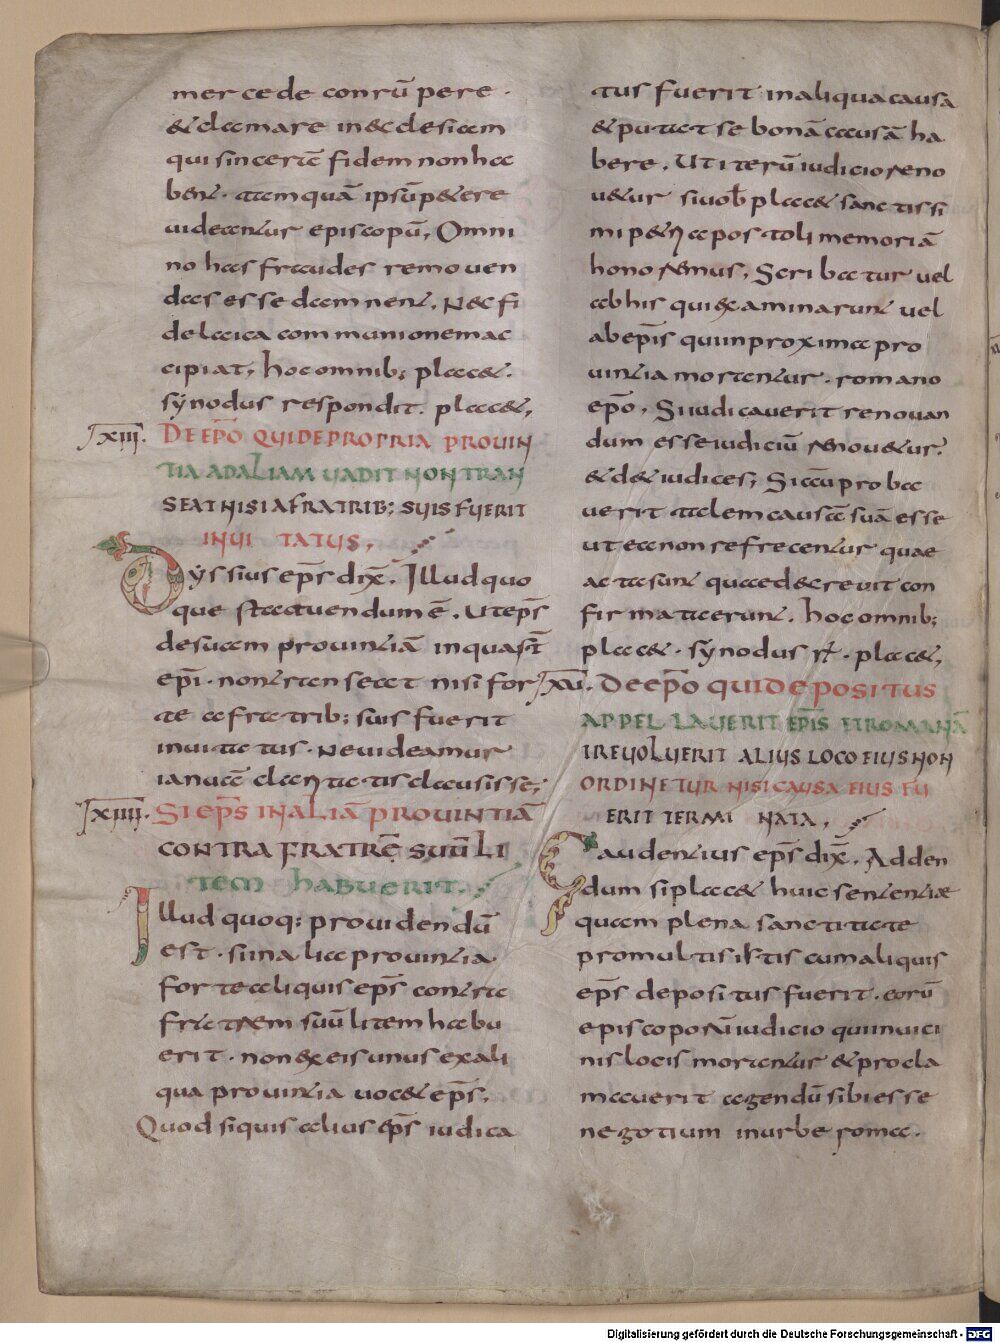 mercede conrū pere ·
& clamare in ecclesiam
qui sinceræ fidem non ha
bent · tamquā ipsū petere
uidentur episcopū, Omni
no has fraudes remouen
das esse damnent. Nec fi
de laica communionem ac
cipiat; hoc omnib; placet.
synodus respondit. placet,
xiii. DE EPO QUI DE PROPRIA PROUIN
TIA AD ALIAM UADIT NON TRAN
SEAT NISI A FRATRIB; SUIS FUERIT
INUI TATUS,
Oyssius eps dix. Illud quo
que statuendum ē. Ut eps
de suam prouintiā in qua st̄
epi · non transeat nisi for
te a fratrib; suis fuerit
inuitatus · Ne uideamur
ianuā claritatis clausisse;
xiiii. SI EPS IN ALIĀ PROUINTIĀ
CONTRA FRATRĒ SUŪ LI
TEM HABUERIT.
Illud quoq; prouidendū
est · si in alia prouintia
forte aliquis eps contra
fratrem suū litem habu
erit · non ex eis unus ex ali
qua prouintia uocet eps,
Quod si quis alius eps iudica
tus fuerit in aliqua causa
& putat se bonā causā ha
bere. Ut iterū iudicio reno
uetur si uob placet sanctissi
mi petri apostoli memoriā
honoremus, Scribatur uel
ab his qui examinarunt uel
ab epis qui in proxima pro
uintia morantur · romano
epo, Si iudicauerit renouan
dum esse iudiciū renouetur.
& det iudices; Si aū proba
uerit talem causā suā esse
ut ea non refrecentur quae
acta sunt quae decreuit con
firmata erunt. hoc omnib;
placet · synodus r̄ · placet,
xv. DE EPO QUI DEPOSITUS
APPELLAUERIT EPIS ET ROMANĀ
IREUOLUERIT ALIUS LOCO EIUS NON
ORDINETUR NISI CAUSA EIUS FU
ERIT TERMI NATA,
Gaudentius eps dix. Adden
dum si placet huic sententiæ
quam plena sanctitate
promultis istis cum aliquis
eps depositus fuerit · eorū
episcoporū iudicio qui in uici
nis locis morantur & procla
mauerit agendū sibi esse
negotium in urbe roma ·
Digitalisierung gefördert durch die Deutsche Forschungsgemeinschaft - DFG